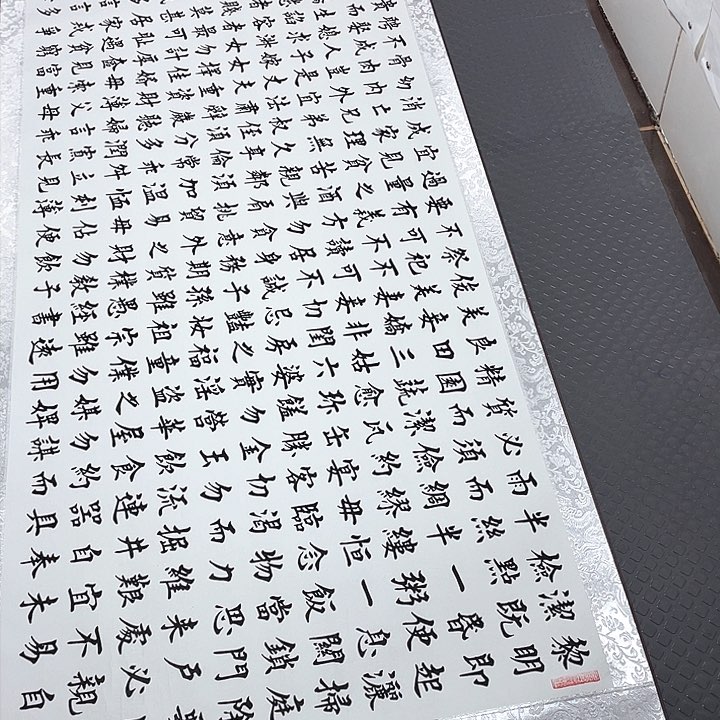 黎明即起灑掃庭除
潔既昏便息關鎖門戶必親自
檢點一粥一飯當思來處不易
半絲半縷恒念物力維艱宜未
雨而綢繆毋臨渴而掘井自奉
必須儉約宴客切勿流連器具
質而潔瓦缶勝金玉飲食約而
精園蔬愈珍饈勿營華屋勿謀
良田三姑六婆實淫盜之媒婢
美妾嬌非閨房之福童僕勿用
俊美妻妾切忌艷妝祖宗雖遠
祭祀不可不誠子孫雖愚經書
不可不讀居身務期質樸教子
要有義方勿貪意外之財勿飲
過量之酒與肩挑貿易毋佔便
宜見貧苦親鄰須加溫恤刻薄
成家理無久享倫常乖舛立見
消亡兄弟叔侄須分多潤寡長
勿內外宜法肅辭嚴聽婦言乖
骨肉豈是丈夫重資財薄父母
不成人子嫁女擇佳婿毋索重
聘娶媳求淑女勿計厚奩見富
貴而生諂容者最可恥遇貧窮